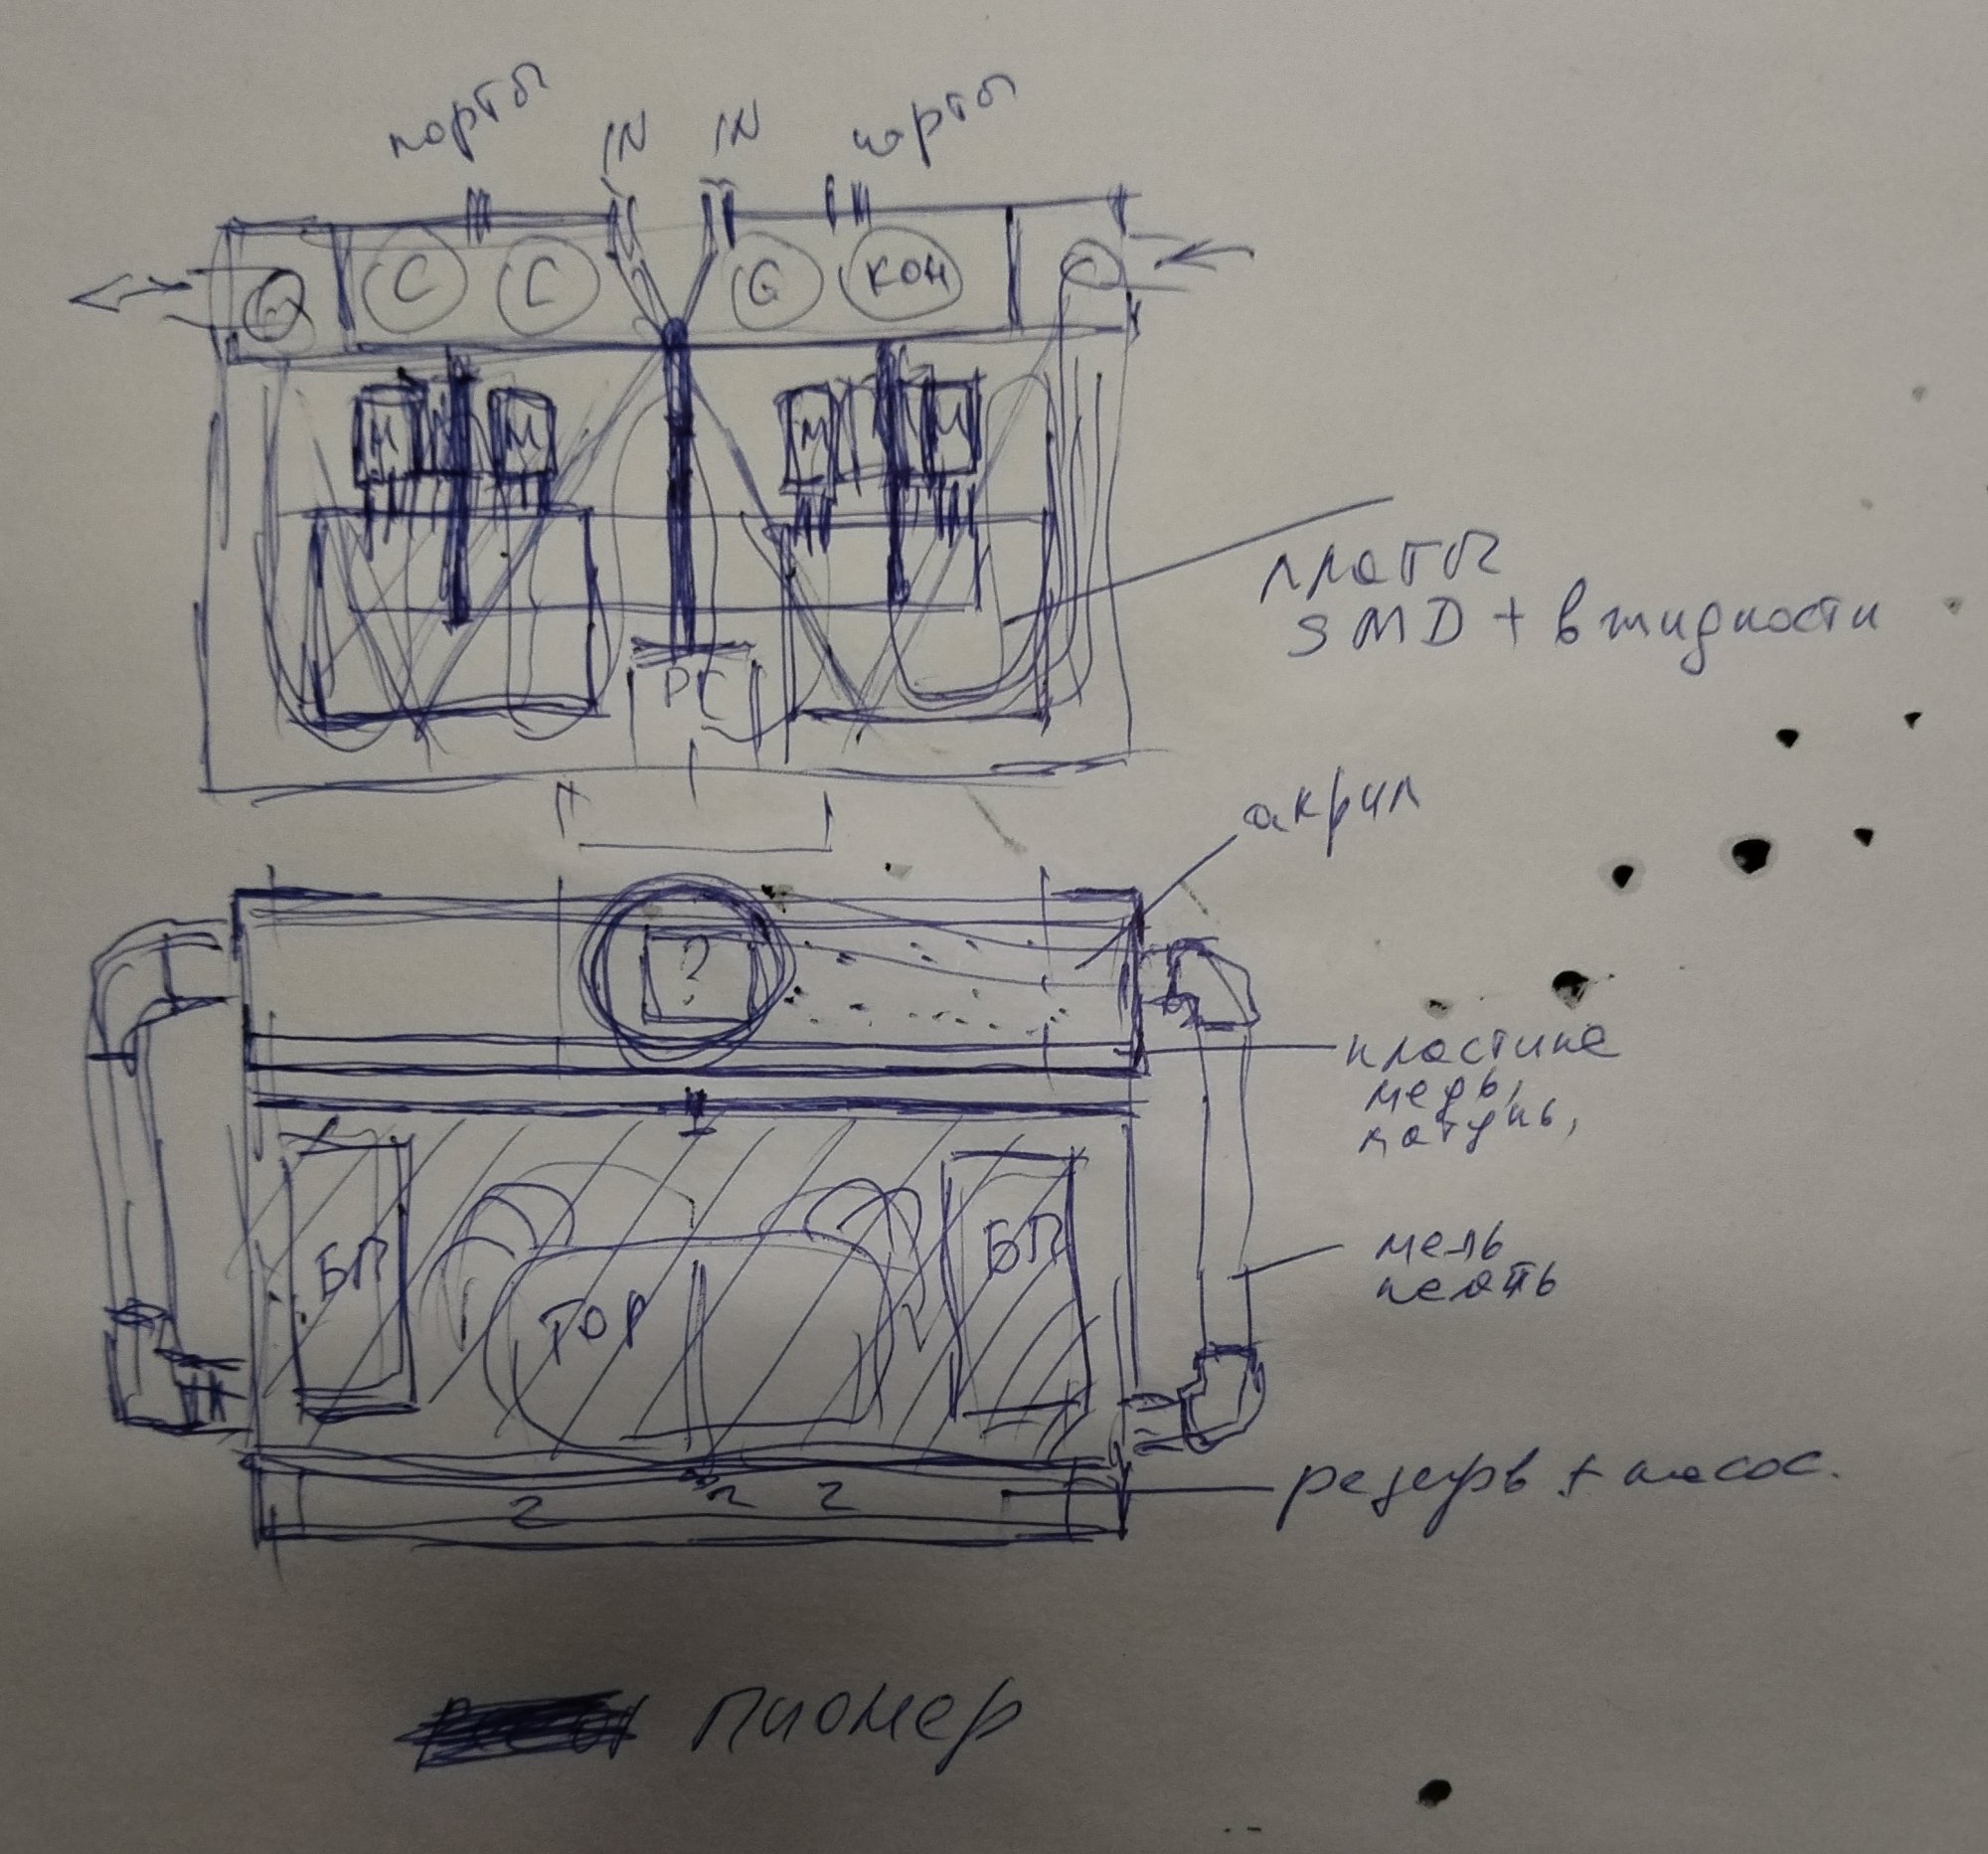 порты IN IN порты
С С G КОН
М М М М
платы
SMD + в жидкости
РС
акрил
?
пластина
медь,
латунь,
БП БП
ТОР
медь
паять
резерв + насос.
2 2 2
Пионер